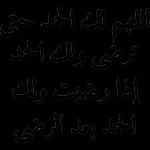 اللهم لك الحمد حتى
ترضى ولك الحمد
إذا رضيت ولك
الحمد بعد الرضى